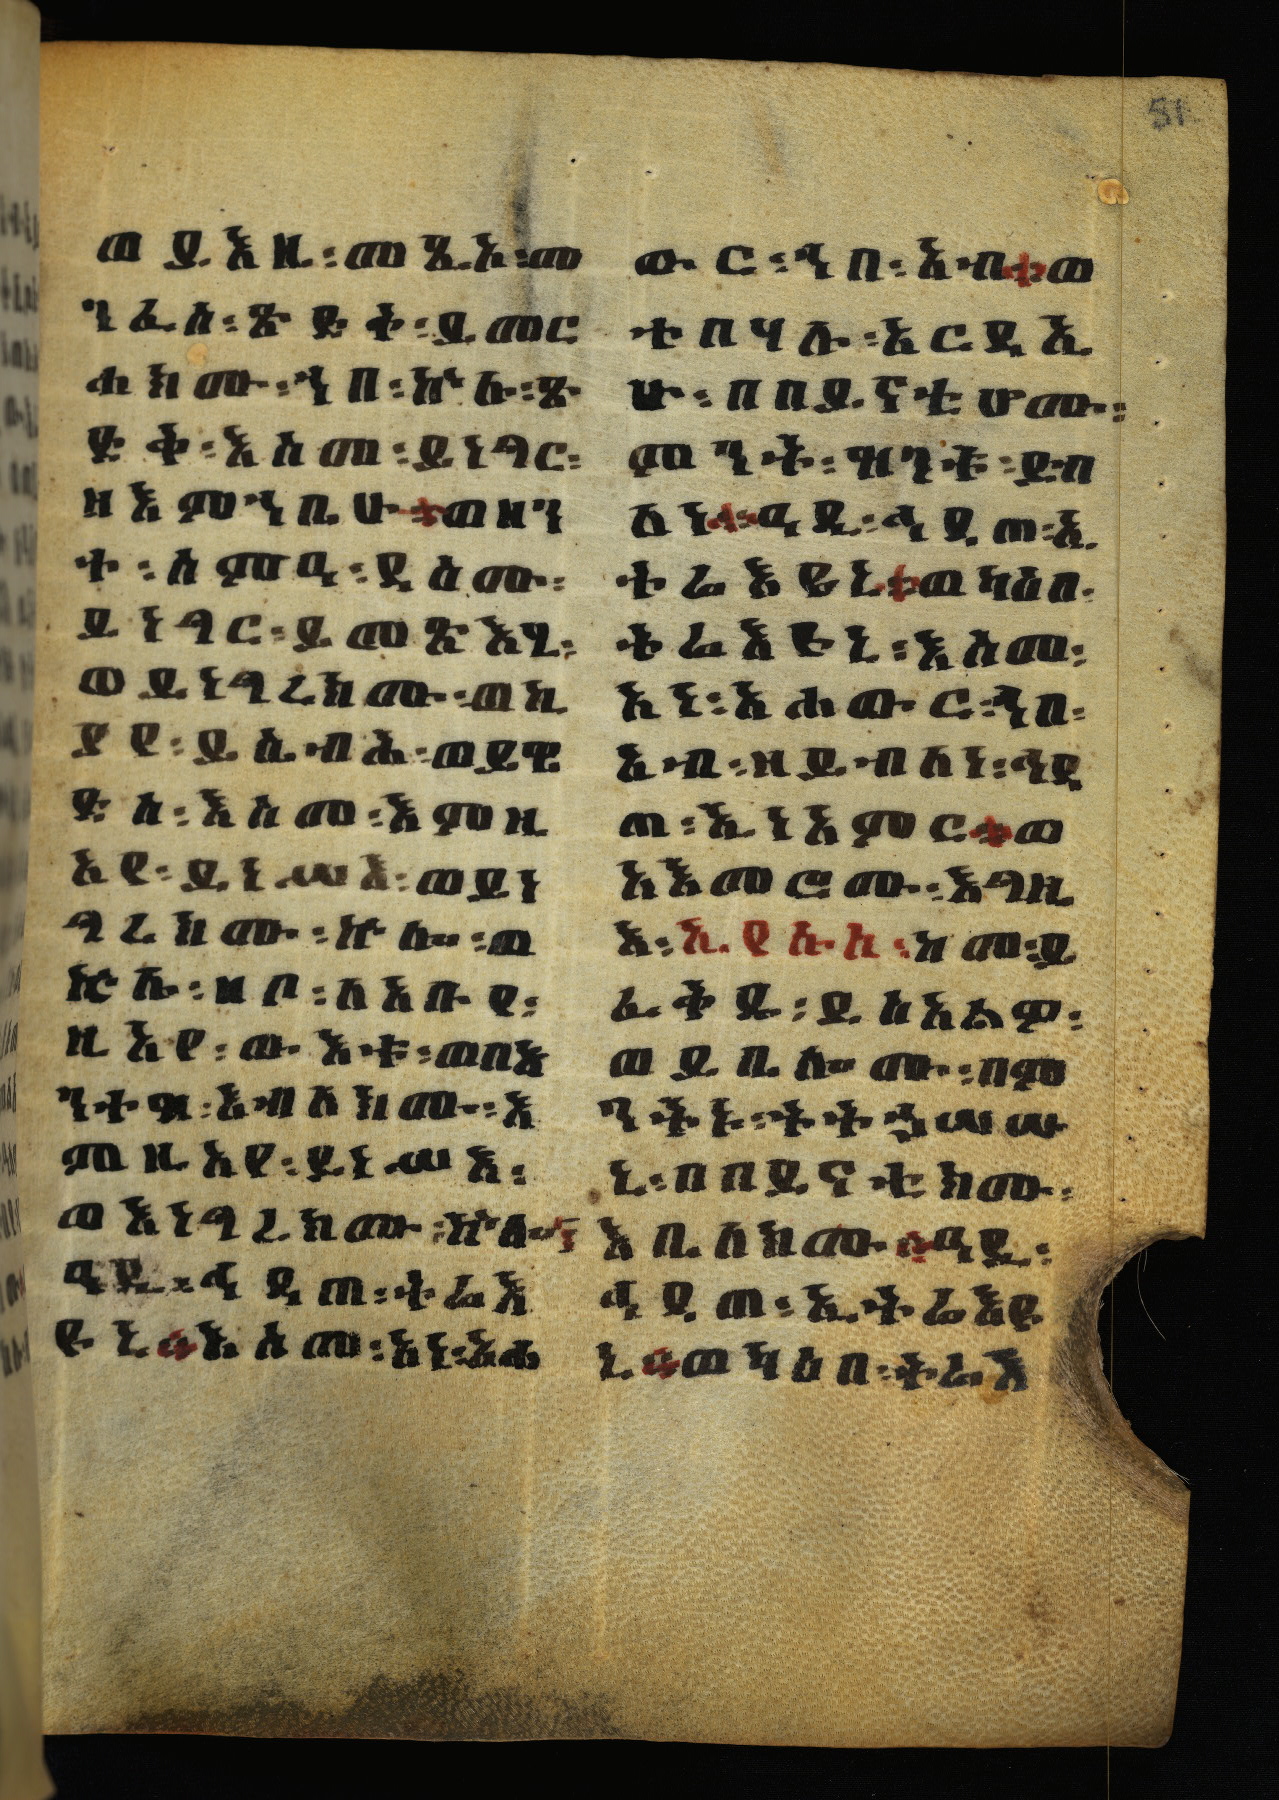 ወይእዜ፡መጺአ፡መ
ንፈሰ፡ጽድቅ፡ይመር
ሐክሙ፡ኀበ፡ኵሉ፡ጽ
ድቅ፡እስመ፡ይነግር፡
ዘእምኀቤሁ።ወዘን
ተ፡ሰምዓ፡
ይነግር፡ይመጽእሂ፡
ወይነግረክሙ፡ወኪ
ያየ፡ይሴብሕ፡ወይዌ
ድስ፡እስመ፡እምዚ
አየ፡ይነሥእ፡ወይነ
ግረክሙ፡ኵሎ፡ወ
ኵሉ፡ዘቦ፡ለአቡየ፡
ዚአየ፡ውእቱ፡ወበእ
ንተዝ፡እብለክሙ፡እ
ምዚአየ፡ይነሥእ፡
ወእነግረክሙ፡ኵሎ፡
ዓዲ፡ኅዳጠ፡ተሬእ
ዩኒ።እስመ፡አነ፡እሐ
ውር፡ኀበ፡አብ።ወ
ተበሃሉ፡አርዳኢ
ሁ፡በበይናቲሆሙ፡
ምንት፡ዝንቱ፡ይብ
ለነ።ዓዲ፡ኅዳጠ፡ኢ
ትሬእዩኒ።ወካዕበ፡
ትሬእዩኒ፡እስመ፡
አነ፡አሐውር፡ኀበ፡
አብ፡ዘይብለነ፡ኅዳ
ጠ፡ኢነአምር።ወ
አእመሮሙ፡እግዚ
እ፡ኢየሱስ፡ከመ፡ይ
ፈቅዱ፡ይስአልዎ፡
ወይቤሎሙ፡በም
ንትኑ፡ትትኃሠሡ
ኒ፡በበይናቲክሙ፡
እቤለክሙ።ዓዲ፡
ኅዳጠ፡ኢትሬእዩ
ኒ።ወካዕበ፡ትሬእ
51